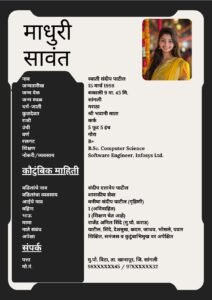 माधुरी
सावंत
नाव स्वाती संदीप पाटील
जन्मतारीख 15 मार्च 1998
जन्म वेळ सकाळी 9 वा. 45 मि.
जन्म स्थळ सांगली
धर्म-जाती मराठा
कुलदैवत श्री भवानी माता
राशी कर्क
उंची 5 फूट 5 इंच
वर्ण गोरा
रक्तगट B+
शिक्षण B.Sc. Computer Science
नोकरी/व्यवसाय Software Engineer, Infosys Ltd.
कौटुंबिक माहिती
वडिलांचे नाव संदीप पाटील
वडिलांचा व्यवसाय शासकीय सेवा
आईचे नाव संदीप पाटील (गृहिणी)
बहीण 1 (अविवाहित)
भाऊ 1 (शिक्षण घेत आहे)
मामा
नाते संबंध पाटील, शिंदे, देशमुख, कदम, जाधव, भोसले, पवार
अपेक्षा
संपर्क
पत्ता मु.पो. विटा, ता. खानापूर, जि. सांगली
मो.नं. 98XXXXXX45 / 97XXXXXX32